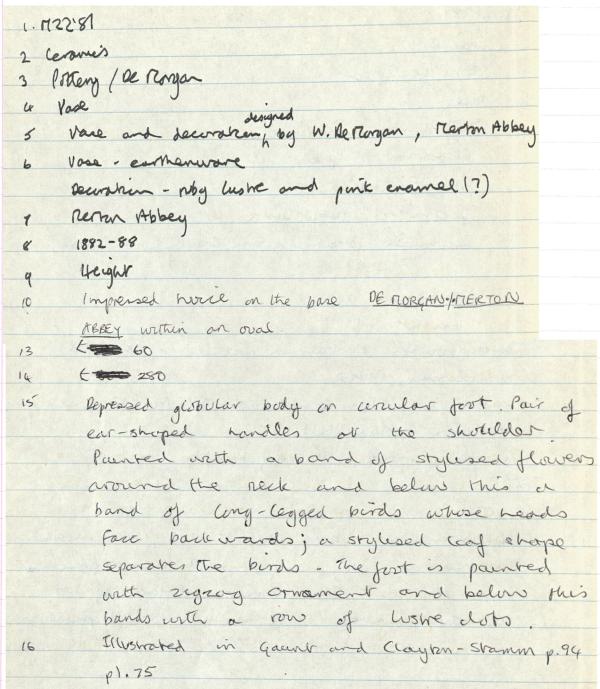 1. M22'81
2 Ceramics
3 Pottery / De Morgan
4 Vase
5 Vase and decoration designed by W. De Morgan, Merton Abbey
6 Vase - earthenware
Decoration - ruby lustre and pink enamel (?)
7 Merton Abbey
8 1882-88
9 Height
10 Impressed twice on the base DE MORGAN./MERTON
ABBEY within an oval
13 £ 60
14 £ 280
15 Depressed globular body on circular foot. Pair of
ear-shaped handles at the shoulder
Painted with a band of stylised flowers
around the neck and below this a
band of long-legged birds whose heads
face backwards; a stylised leaf shape
separates the birds - The foot is painted
with zigzag ornament and below this
bands with a row of lustre dots.
16 Illustrated in Gaunt and Clayton-Stamm p.94
pl.75